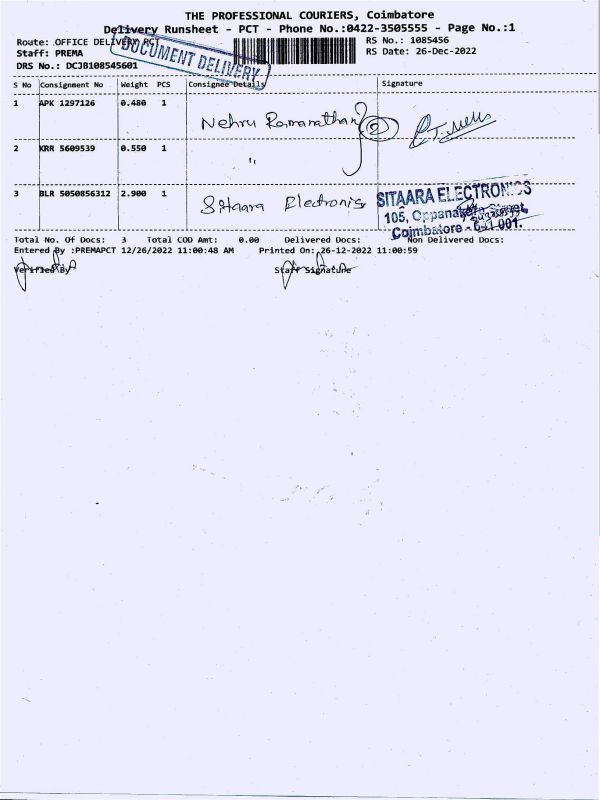 THE PROFESSIONAL COURIERS, Coimbatore
Delivery Runsheet - PCT - Phone No.:0422-3505555 - Page No.:1
Route: OFFICE DELIVERY PCT
RS No.: 1085456
Staff: PREMA
RS Date: 26-Dec-2022
DRS No.: DCJB108545601
DOCUMENT DELIVERY
S No Consignment No Weight PCS Consignee Details Signature
1 APK 1297126 0.480 1 Nehru Ramanathan 2
2 KRR 5609539 0.550 1 "
3 BLR 5050856312 2.900 1 Sitaara Electronics
SITAARA ELECTRONICS
105, Oppanakara Street,
Coimbatore - 641 001.
Total No. Of Docs: 3 Total COD Amt: 0.00 Delivered Docs: Non Delivered Docs:
Entered By :PREMAPCT 12/26/2022 11:00:48 AM Printed On: 26-12-2022 11:00:59
Verified By Staff Signature